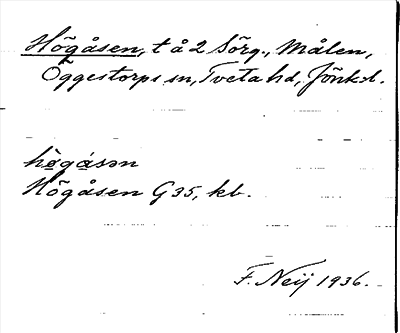 Högåsen, t å 2 Sörg., Målen,
Öggestorps sn, Tveta hd, Jönk.l.
hö̀gȧ́sən
Högåsen G 35, kb.
F. Neij 1936.